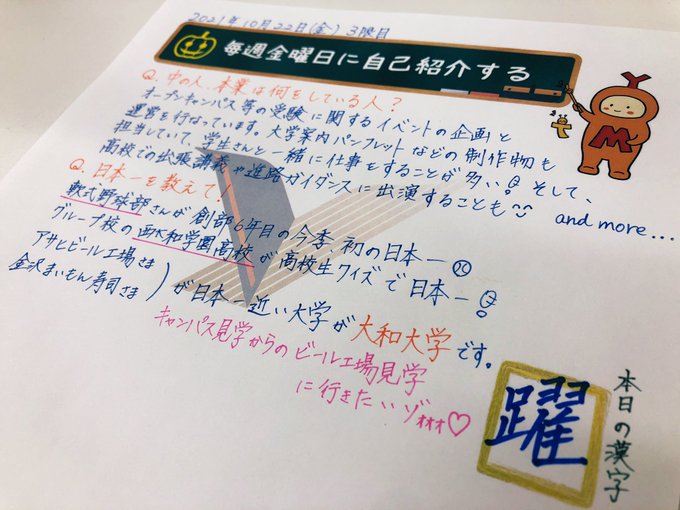 2021年10月22日(金) 3限目
毎週金曜日に自己紹介する
Q. 中の人、本業は何をしている人?
オープンキャンパス等の受験に関するイベントの企画と
運営を行なっています。大学案内パンフレットなどの制作物も
担当していて、学生さんと一緒に仕事をすることが多い。そして、
高校での出張講義や進路ガイダンスに出演することも and more...
Q. 日本一を教えて!
軟式野球部さんが 創部6年目の今季、初の日本一
グループ校の西大和学園高校が高校生クイズで日本一
アサヒビール工場さま
金沢まいもん寿司さま
)が日本一近い大学が 大和大学です。
キャンパス見学からのビール工場見学
に行きたいゾォォォ♡
M
本日の漢字
躍